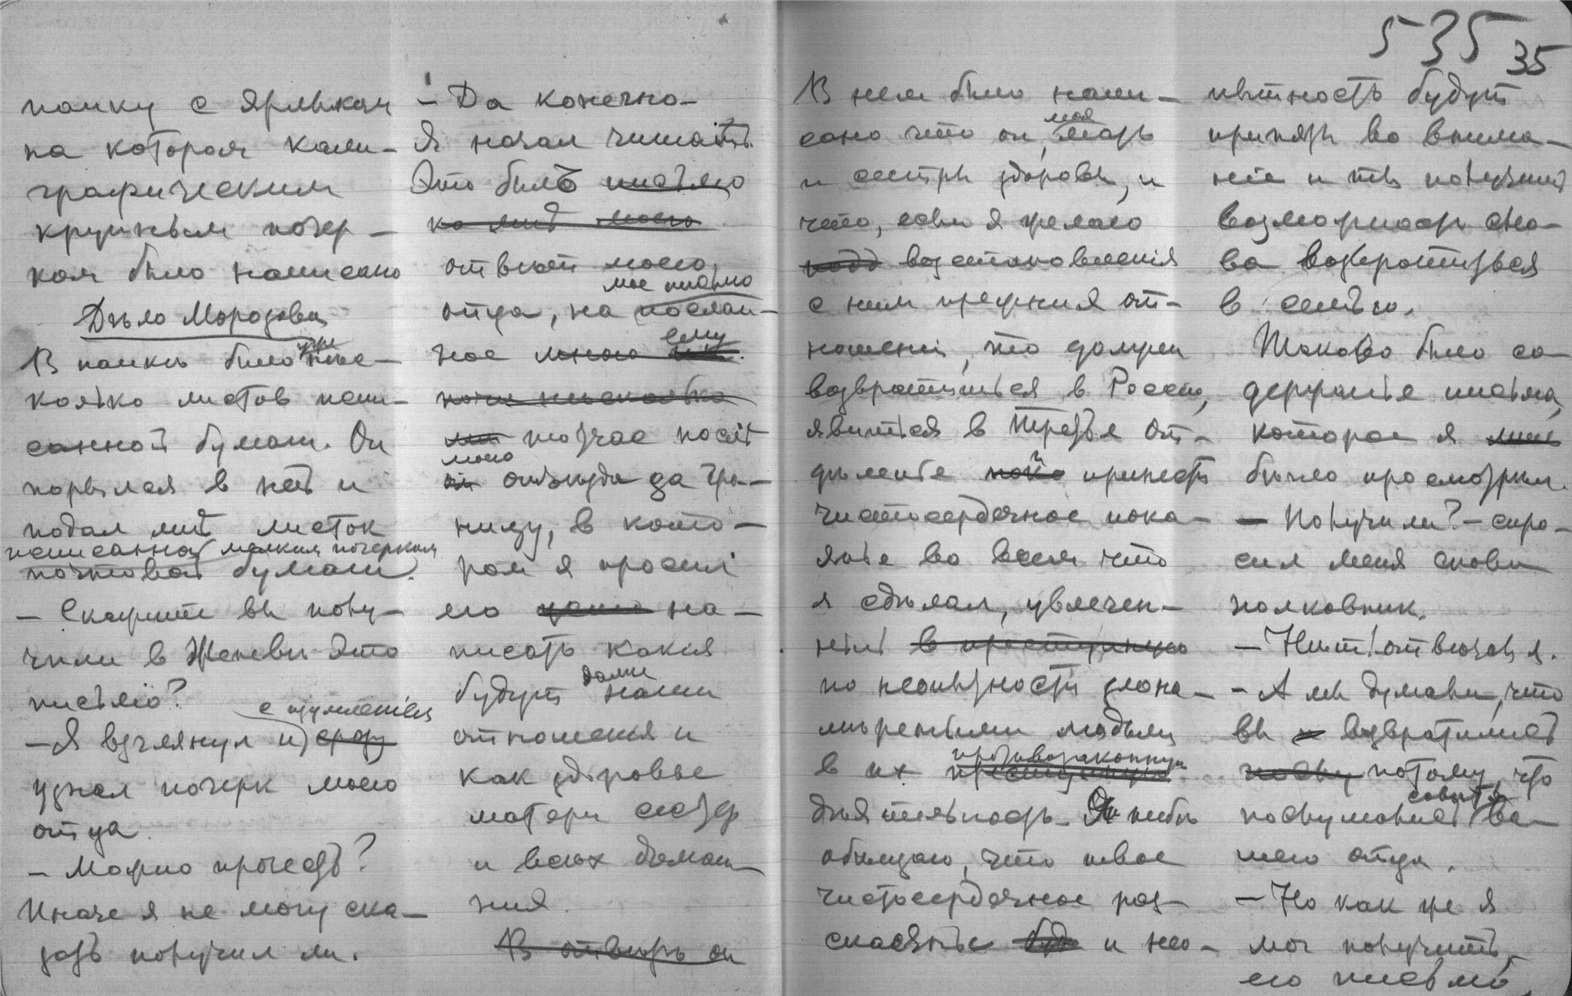 535 35
папку с ярлыком
на котором кали-
графическим
крупным почер-
ком было написано
Дѣло Морозова
В папкѣ было уже нѣс-
колько листов испи-
санной бумаги. Он
порылся в ней и
подал мнѣ листок
исписанной мелким почерком
почтовой бумаги.
— Скажите вы полу-
чили в Женевѣ это
письмо?
— Я взглянул и с изумленіем сразу
узнал почерк моего
отца.
— Можно прочесть?
Иначе я не могу ска-
зать получил ли.
— Да конечно —
Я начал читать.
Это было письмо
ко мнѣ моего
отвѣт моего
отца, на мое письмо послан-
ное мною ему
почти нѣсколько
тотчас послѣ
моего отъѣзда за гра-
ницу, в кото-
ром я просил
его на-
писать какія
будут дальше наши
отношенія и
как здоровье
матери сестер
и всѣх домаш-
них.
В отвѣтѣ он
В нем было напи-
сано что он, моя мать
и сестры здоровы, и
что, если я желаю
возстановленія
с ним прежних от-
ношеній, то должен
возвратиться в Россію,
явиться в Третье От-
дѣленіе и принести
чистосердечное пока-
яніе во всем что
я сдѣлал, увлечен-
ный в преступную
по неопытности злона-
мѣренными людьми
в их противозаконную преступную
дѣятельность. Я тебѣ
обѣщаю, что твое
чистосердечное рас-
скаяніе и нео-
пытность будут
принять во внима-
ніе и ты получишь
возможность сно-
ва возвратиться
в семью.
Таково было со-
держаніе письма,
которое я лишь
бѣгло просмотрѣл.
— Получили? — спро-
сил меня снова
полковник.
— Нѣт! отвѣчал я.
— А мы думали, что
вы возвратились
потому, что
послушались совѣта ва-
шего отца.
— Но как же я
мог получить
его письмо,